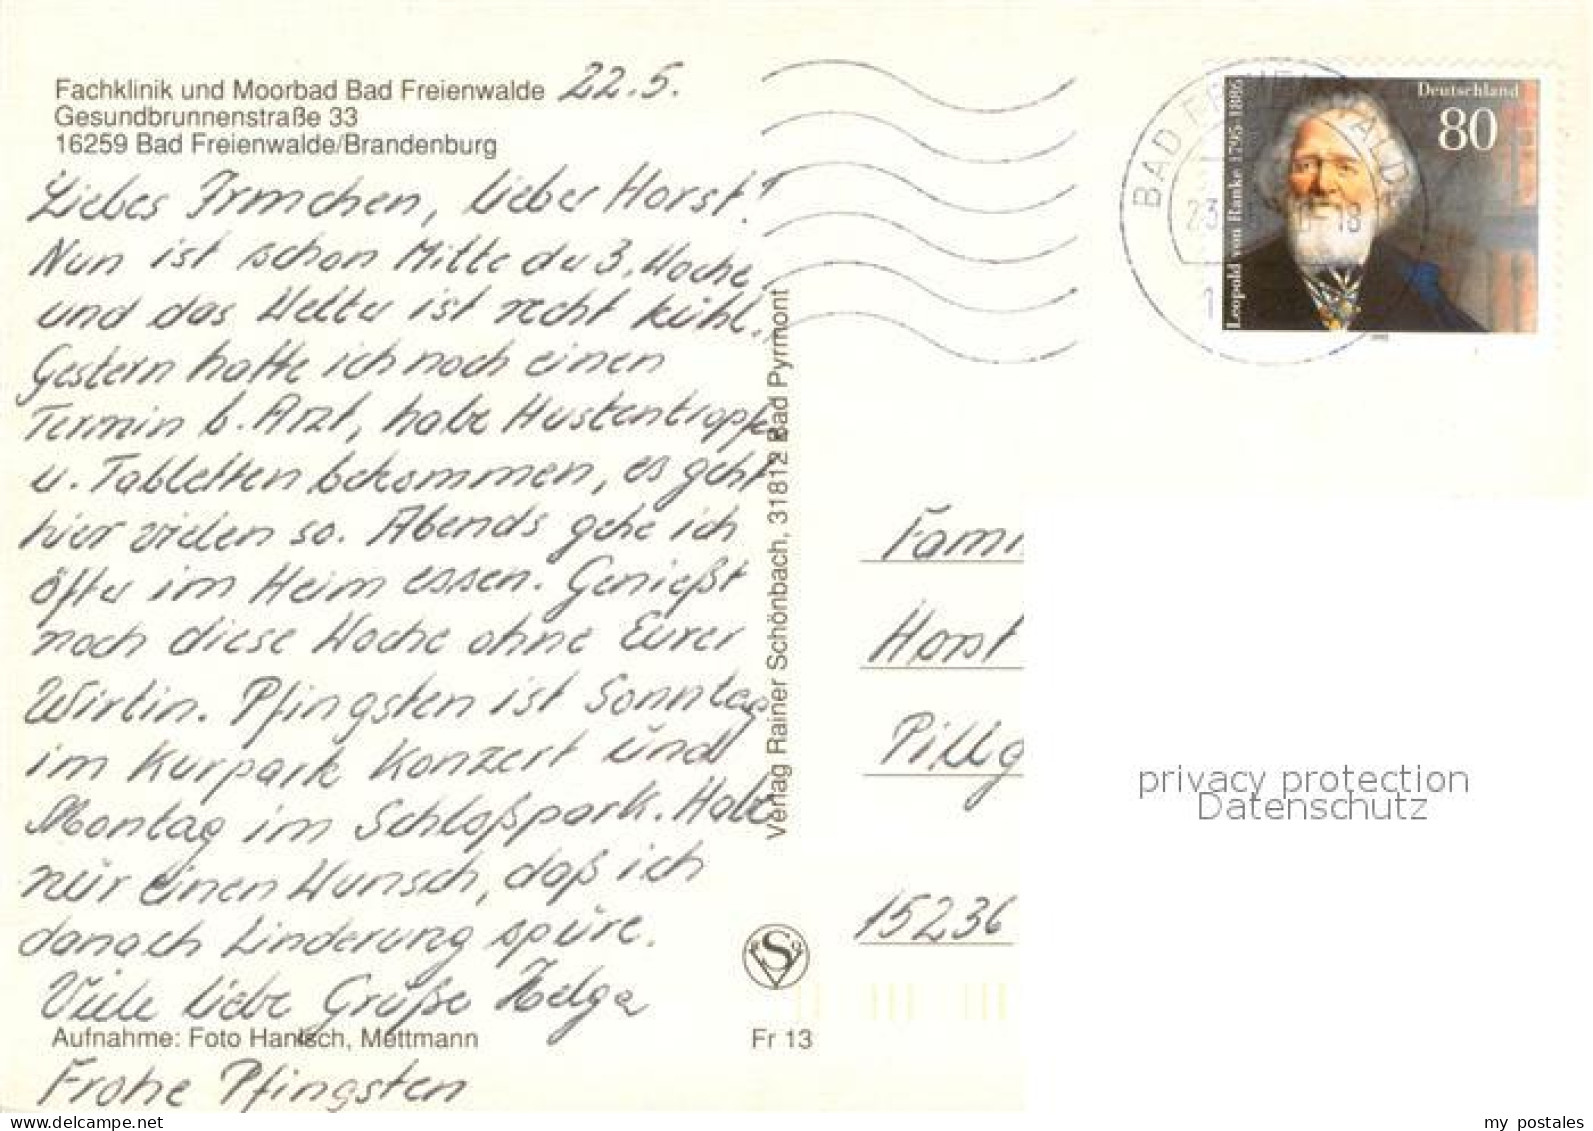 Fachklinik und Moorbad Bad Freienwalde 22.5.
Gesundbrunnenstraße 33
16259 Bad Freienwalde/Brandenburg
Liebes Irmchen, lieber Horst!
Nun ist schon Mitte der 3. Woche
und das Wetter ist recht kühl.
Gestern hatte ich noch einen
Termin b. Arzt, habe Hustentropfen
u. Tabletten bekommen, es geht
hier vielen so. Abends gehe ich
öfter im Heim essen. Genießt
noch diese Woche ohne Eurer
Wirtin. Pfingsten ist Sonntag
im Kurpark Konzert und
Montag im Schloßpark. Habe
nur einen Wunsch, daß ich
danach Linderung spüre.
Viele liebe Grüße Helga
Aufnahme: Foto Hanisch, Mettmann
Frohe Pfingsten
Verlag Rainer Schönbach, 31812 Bad Pyrmont
Fr 13
BAD FREIENWALDE
23
18
Deutschland
80
Leopold von Ranke 1795-1886
1995
Fami
Horst
Pillg
15236
privacy protection
Datenschutz
my postales